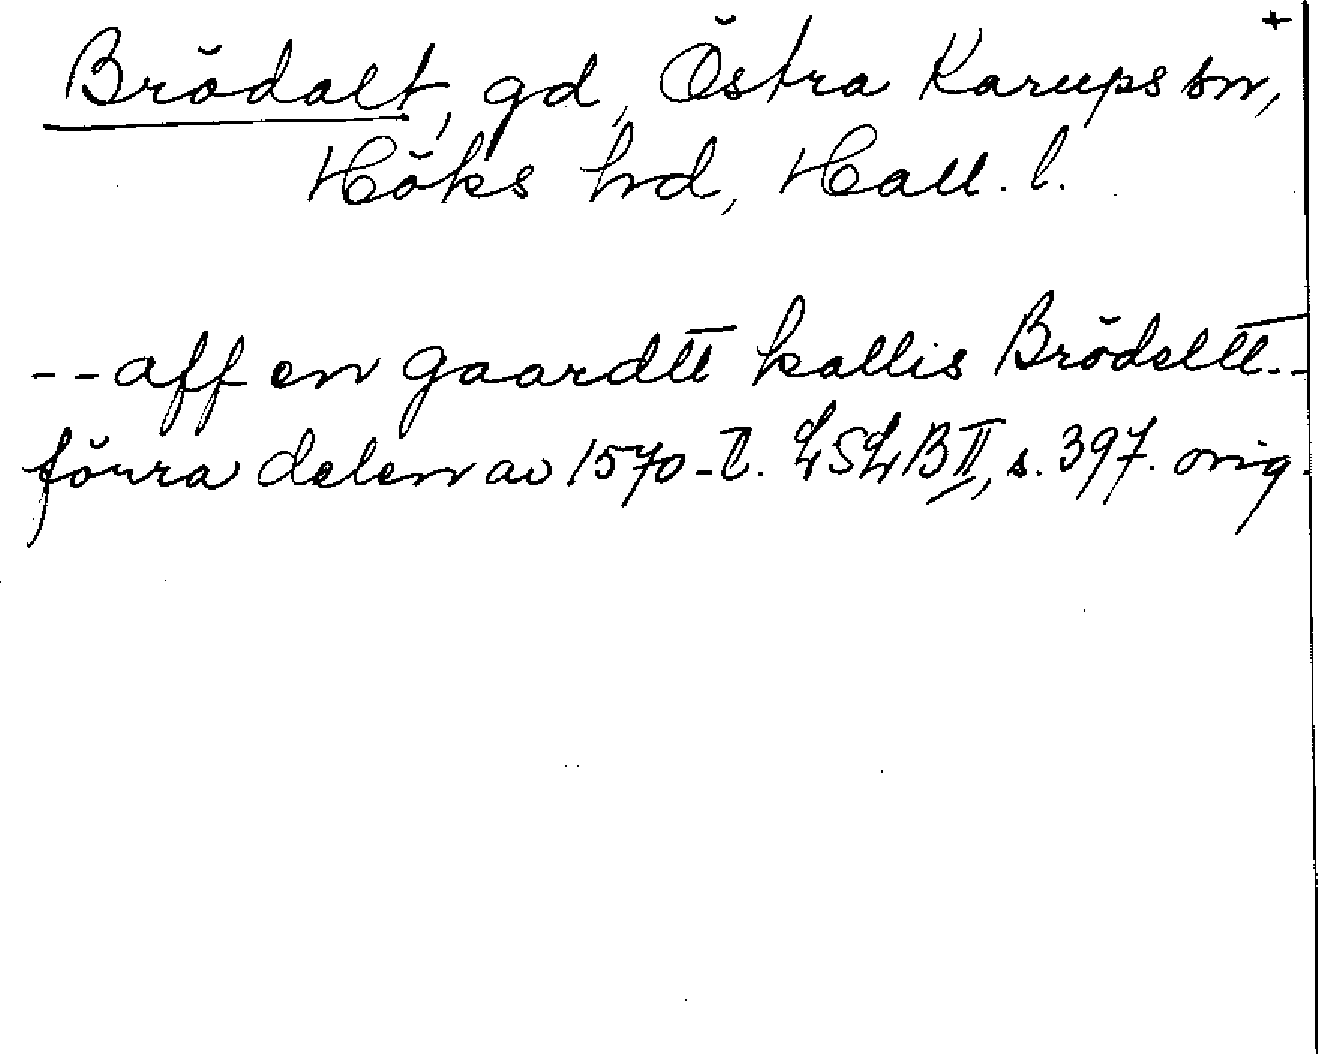 +
Brödalt, gd, Östra Karups sn,
Höks hrd, Hall. l.
-- aff en gaardtt kallis Brödeltt --
förra delen av 1570-t. LSLB II, s. 397. orig.